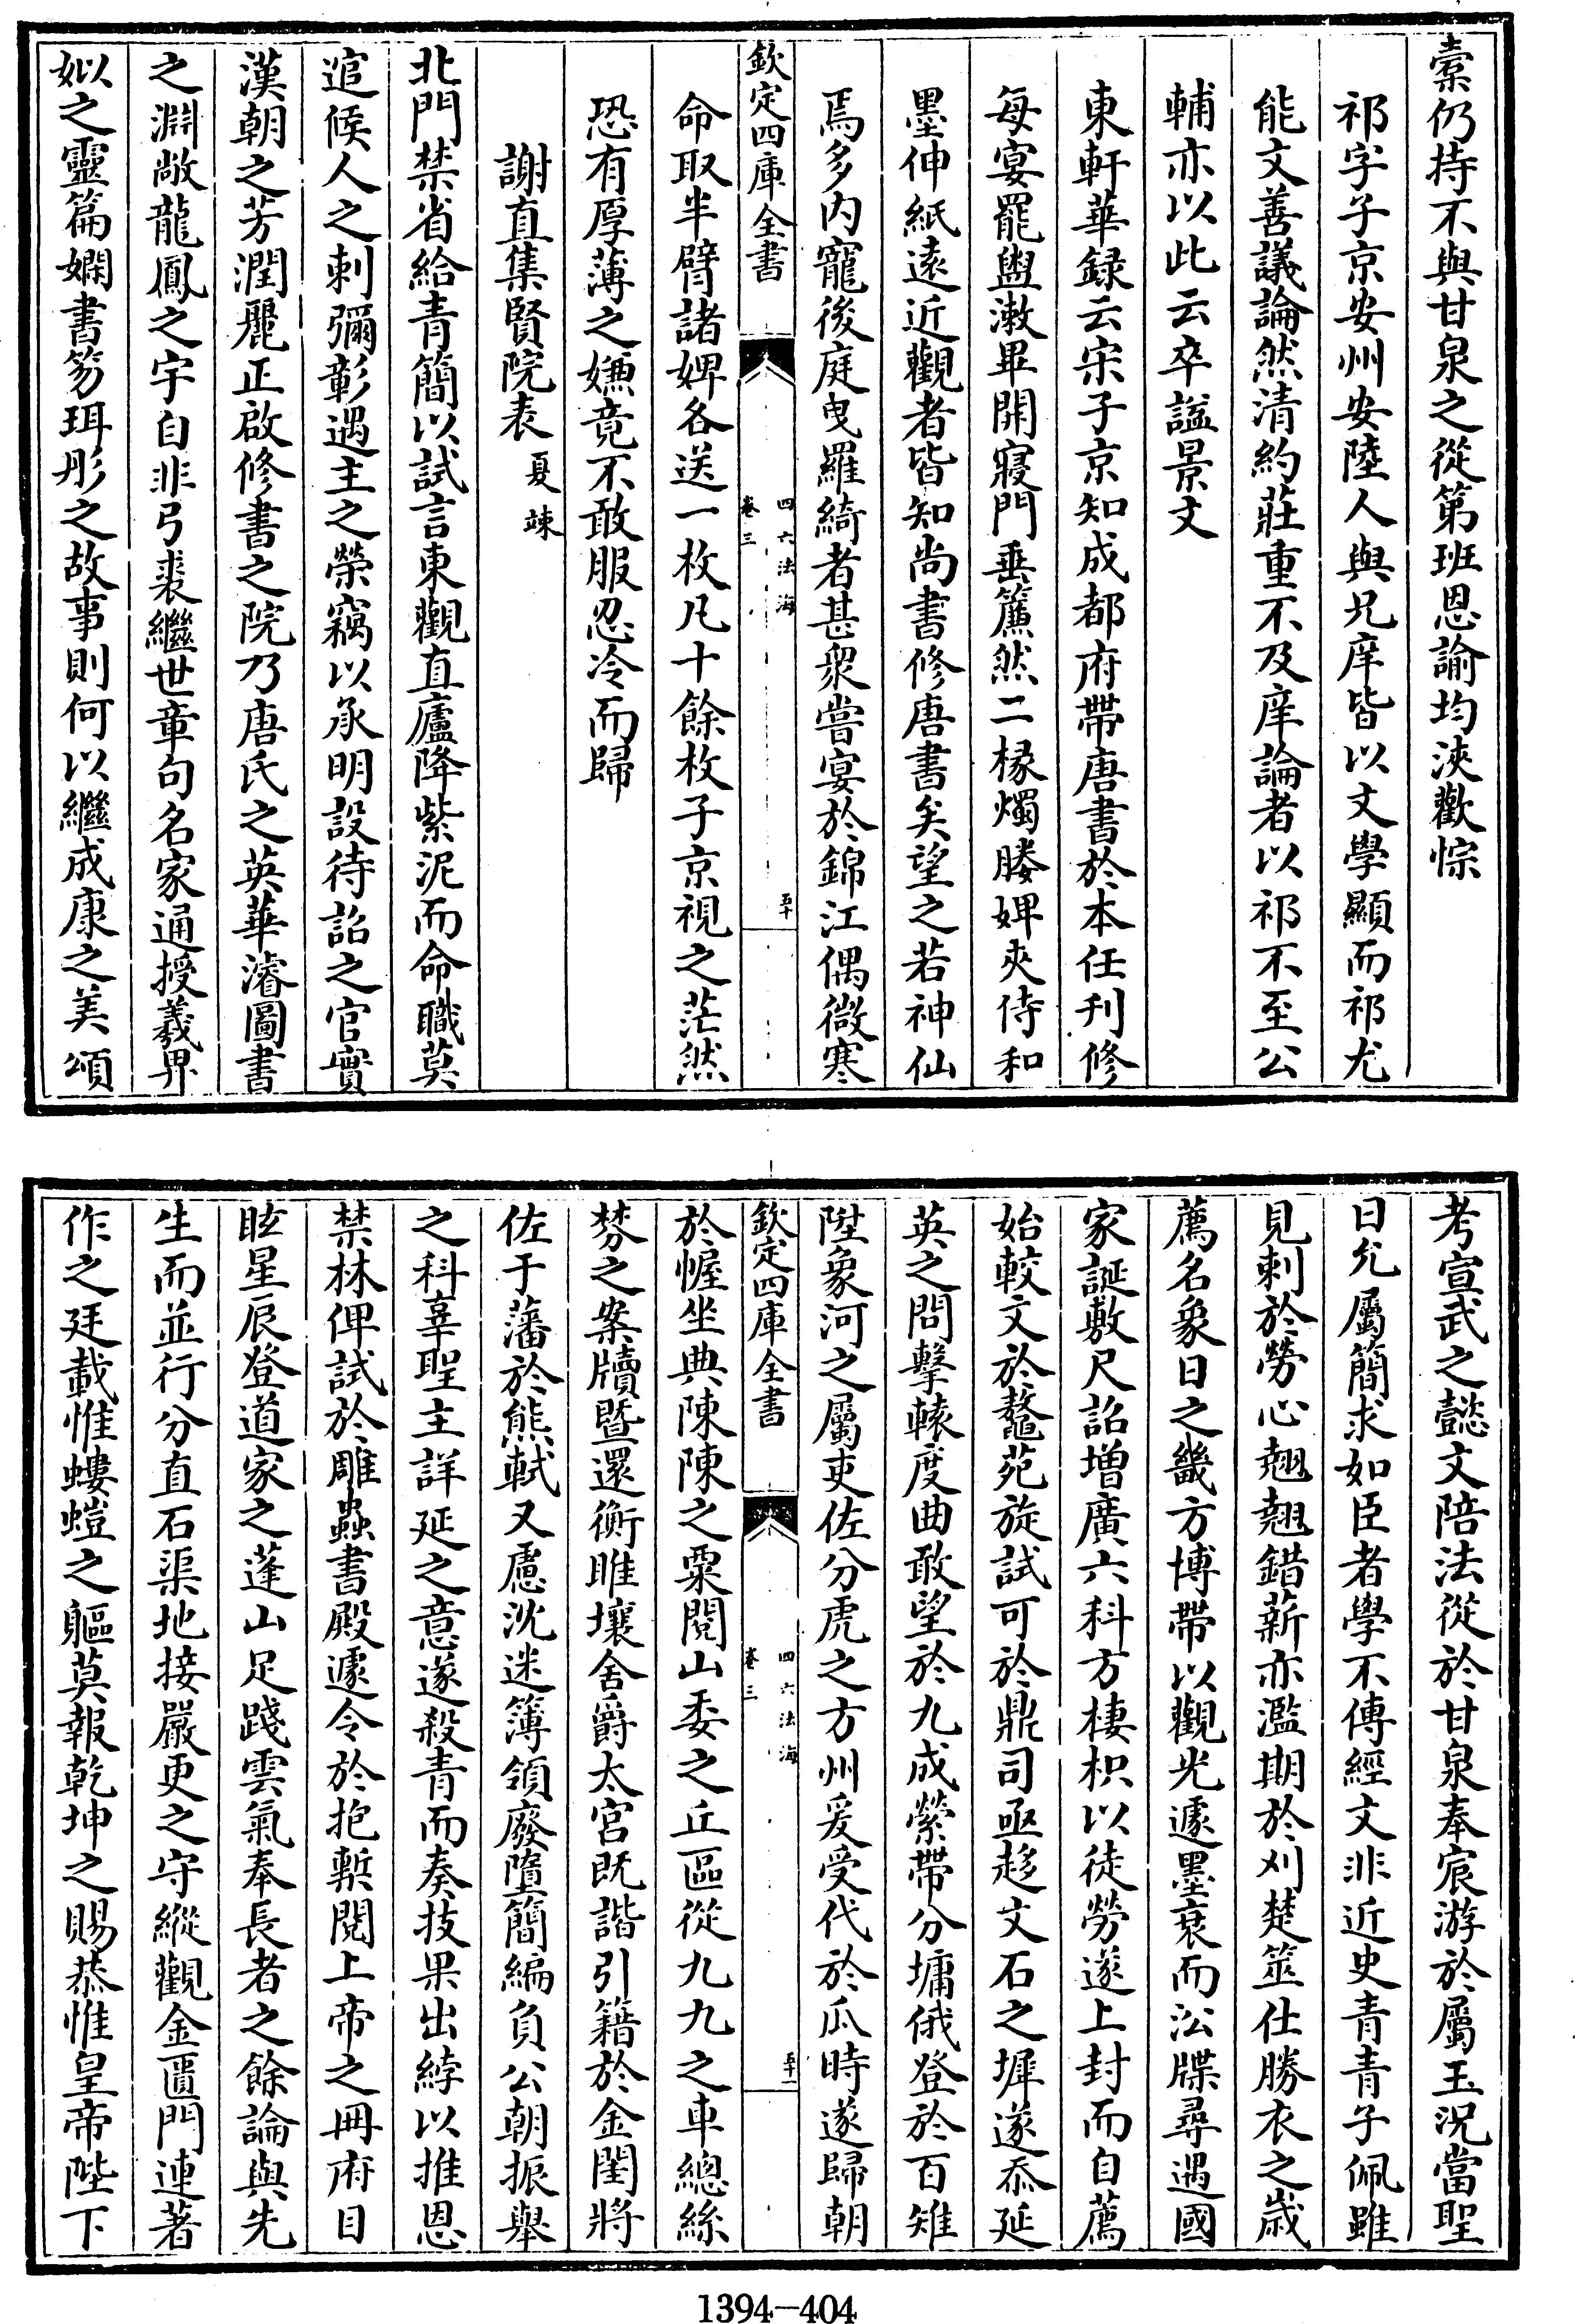 橐仍持不與甘泉之從第班恩諭均浹歡悰
祁字子京安州安陸人與兄庠皆以文學顯而祁尤
能文善議論然清約莊重不及庠論者以祁不至公
輔亦以此云卒諡景文
東軒華録云宋子京知成都府帶唐書於本任刊修
每宴罷盥漱畢開寢門垂簾然二椽燭媵婢夾侍和
墨伸紙遠近觀者皆知尚書修唐書矣望之若神仙
焉多内寵後庭曳羅綺者甚衆嘗宴於錦江偶微寒
欽定四庫全書
四六法海
卷三
五十
命取半臂諸婢各送一枚凡十餘枚子京視之茫然
恐有厚薄之嫌竟不敢服忍冷而歸
謝直集賢院表 夏竦
北門禁省給青簡以試言東觀直廬降紫泥而命職莫
追候人之刺彌彰遇主之榮竊以承明設待詔之官實
漢朝之芳潤麗正啟修書之院乃唐氏之英華濬圖書
之淵敞龍鳳之宇自非弓裘繼世章句名家通授羲畀
姒之靈篇嫻書笏珥彤之故事則何以繼成康之美頌
考宣武之懿文陪法從於甘泉奉宸游於屬玉況當聖
日允屬簡求如臣者學不傳經文非近史青青子佩雖
見刺於勞心翹翹錯薪亦濫期於刈楚筮仕勝衣之歲
薦名象日之畿方博帶以觀光遽墨衰而訟牒尋遇國
家誕敷尺詔增廣六科方棲枳以徒勞遂上封而自薦
始較文於鼇苑旋試可於鼎司亟趍文石之墀遂忝延
英之問擊轅度曲敢望於九成縈帶分墉俄登於百雉
陞象河之屬吏佐分虎之方州爰受代於瓜時遂歸朝
欽定四庫全書
四六法海
卷三
五十一
於幄坐典陳陳之粟閱山委之丘區從九九之車總絲
棼之案牘暨還衡睢壤舍爵太宮既諧引籍於金閨將
佐于藩於熊軾又慮沈迷簿領廢墮簡編負公朝振舉
之科辜聖主詳延之意遂殺青而奏技果出綍以推恩
禁林俾試於雕蟲書殿遽令於抱槧閱上帝之冊府目
眩星辰登道家之蓬山足踐雲氣奉長者之餘論與先
生而並行分直石渠地接嚴更之守縱觀金匱門連著
作之廷載惟螻螘之軀莫報乾坤之賜恭惟皇帝陛下
1394—404